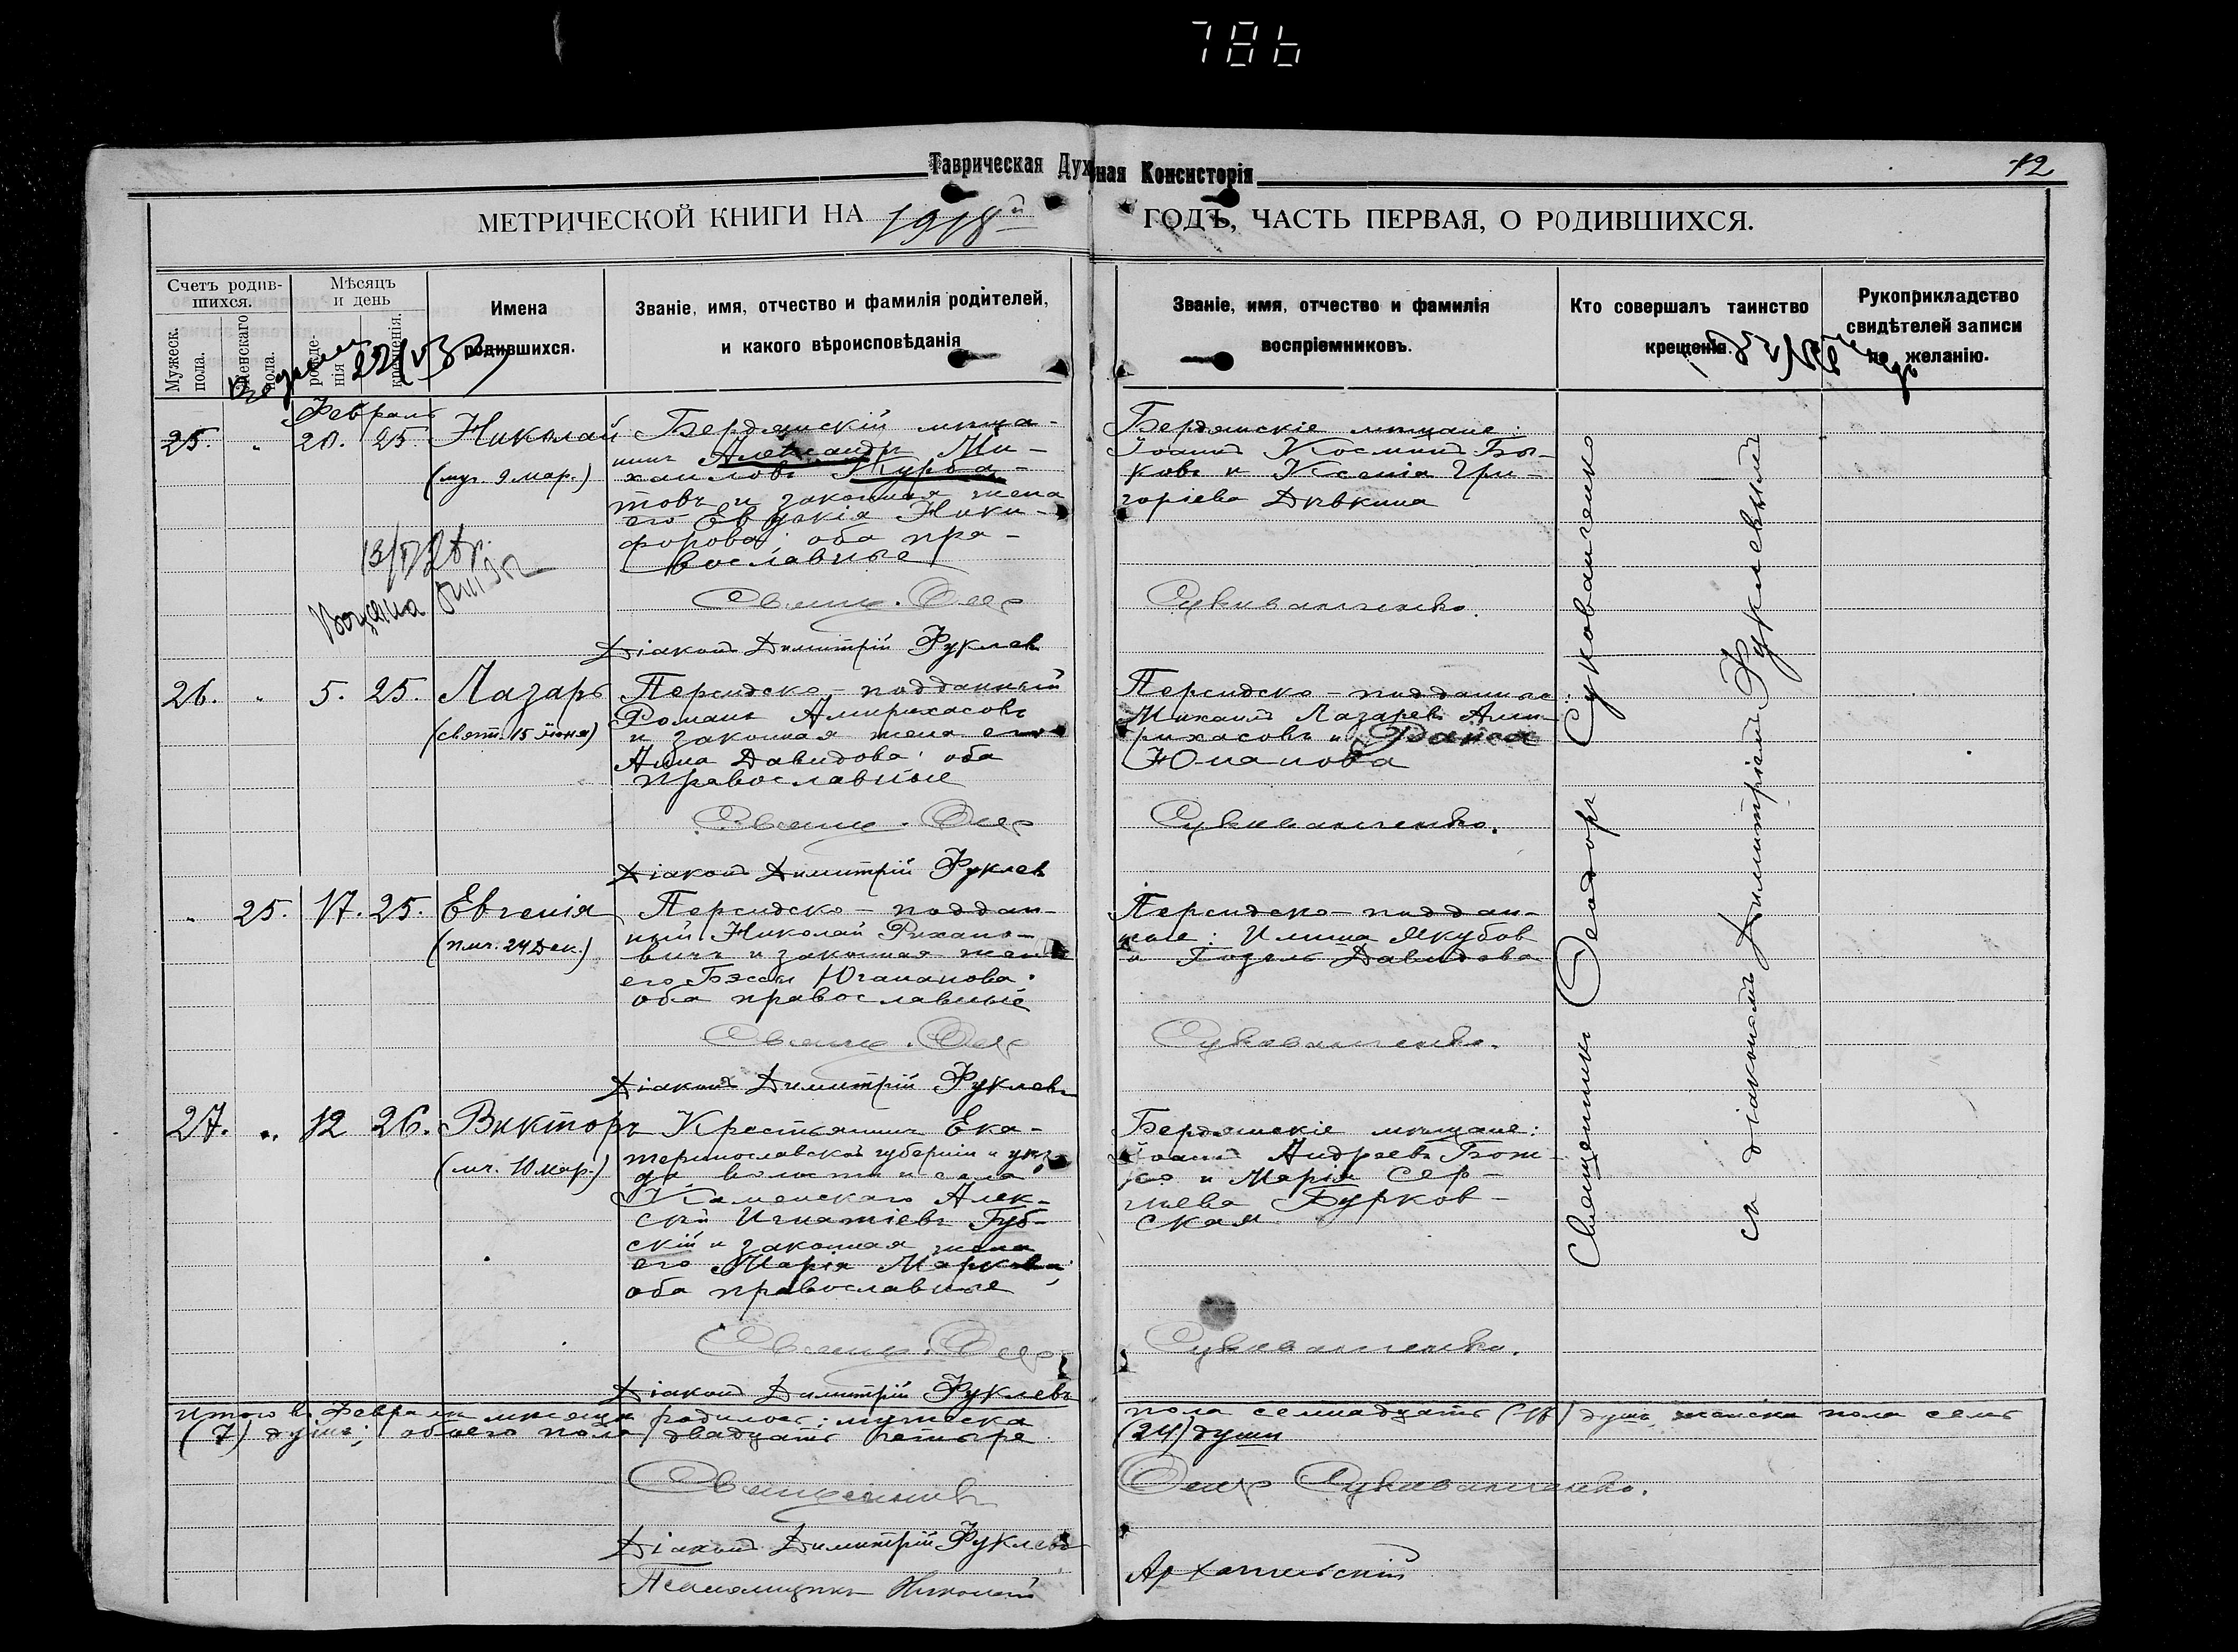 786
Таврическая Духовная Консисторія
12
МЕТРИЧЕСКОЙ КНИГИ НА 1918й ГОДЪ, ЧАСТЬ ПЕРВАЯ, О РОДИВШИХСЯ.
Счетъ родившихся.
Мужеск. пола.
Женскаго пола.
Мѣсяцъ и день
рожденія
крещенія.
Имена родившихся.
Званіе, имя, отчество и фамилія родителей, и какого вѣроисповѣданія
Званіе, имя, отчество и фамилія воспріемниковъ.
Кто совершалъ таинство крещенія.
Рукоприкладство свидѣтелей записи по желанію.
Февраль
25. " 20. 25. Николай
(муч. 9 мар.)
Бердянскій мѣща-
нинъ Александръ Ми-
хаиловъ Курба-
товъ и законная жена
его Евдокія Ники-
форова: оба пра-
вославные
Бердянскіе мѣщане:
Іоаннъ Косминъ Бы-
ковъ и Ксенія Гри-
горіева Дѣвкина
Свящ. Ѳеодръ Сукованченко.
Діаконъ Димитрій Фуклевъ
26. " 5. 25. Лазарь
(свят. 15 іюня)
Персидско-подданный
Романъ Амирхасовъ
и законная жена его
Анна Давидова: оба
православные
Персидско-подданные
Михаилъ Лазаревъ Ами-
рихасовъ и Раиса
Юнанова
Свящ. Ѳеодръ Сукованченко.
Діаконъ Димитрій Фуклевъ
" 25. 17. 25. Евгенія
(пмч. 24 Дек.)
Персидско-поддан-
ный Николай Рихано-
вичъ и законная жена
его Бэсси Юхананова:
оба православные
Персидско-поддан-
ные: Илиша Якубов
и Гозель Давидова
Свящ. Ѳеодръ Сукованченко.
Діаконъ Димитрій Фуклевъ
27. " 12 26. Викторъ
(мч. 10 мар.)
Крестьянинъ Ека-
теринославской губерніи и уѣз-
да, волости и села
Каменскаго Алек-
сѣй Игнатіевъ Губ-
скій и законная жена
его Марія Маркова;
оба православные
Бердянскіе мѣщане:
Іоаннъ Андреевъ Бож-
ко и Марія Сер-
гѣева Бурков-
ская
Свящ. Ѳеодръ Сукованченко.
Діаконъ Димитрій Фуклевъ
Священникъ Ѳеодоръ Сукованченко
съ діакономъ Димитріемъ Фуклевымъ
Итого въ Февралѣ мѣсяцѣ родилось: мужеска пола семнадцать (17) душъ, женска пола семь
(7) душъ; обоего пола двадцать четыре (24) души
Священникъ Ѳеодръ Сукованченко.
Діаконъ Димитрій Фуклевъ
Псаломщикъ Николай Архангельскій